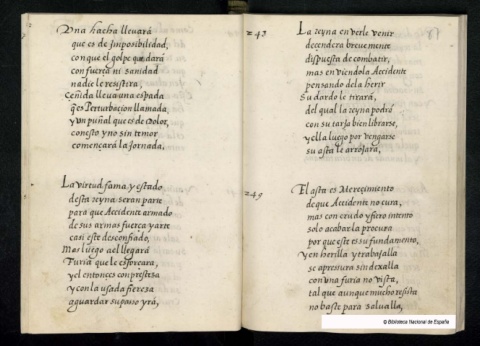 Una hacha llevará
que es de Imposibilidad,
con que el golpe que dará
con fuerça ni sanidad
nadie le resistira;
Ceñida lleva una espada
q̃ es Perturbacion llamada,
y un puñal que es de Dolor,
con esto y no sin temor
començará la jornada,
La virtud fama y estado
desta reyna seran parte
para que Accidente armado
de sus armas fuerça y arte
casi este desconfiado,
Mas luego a el llegará
Furia que le esforçara,
y el entonces con presteza
y con la usada fiereza
aguardar su paso yrá,
243
La reyna en verle venir
decendera brevemente
dispuesta de combatir,
mas en viendola Accidente
pensando de la herir
Su dardo le tirará,
del qual la reyna podrá
con su tarja bien librarse,
y ella luego por vengarse
su asta le arrojara,
249
El asta es Merecimiento
de que Accidente no cura,
mas con crudo y fiero intento
solo acabar la procura
por que este es su fundamento,
Y en herilla y trabajalla
se apresura sin dexalla
con una furia no vista,
tal que aunque mucho resista
no baste para solvalla,
© Biblioteca Nacional de España